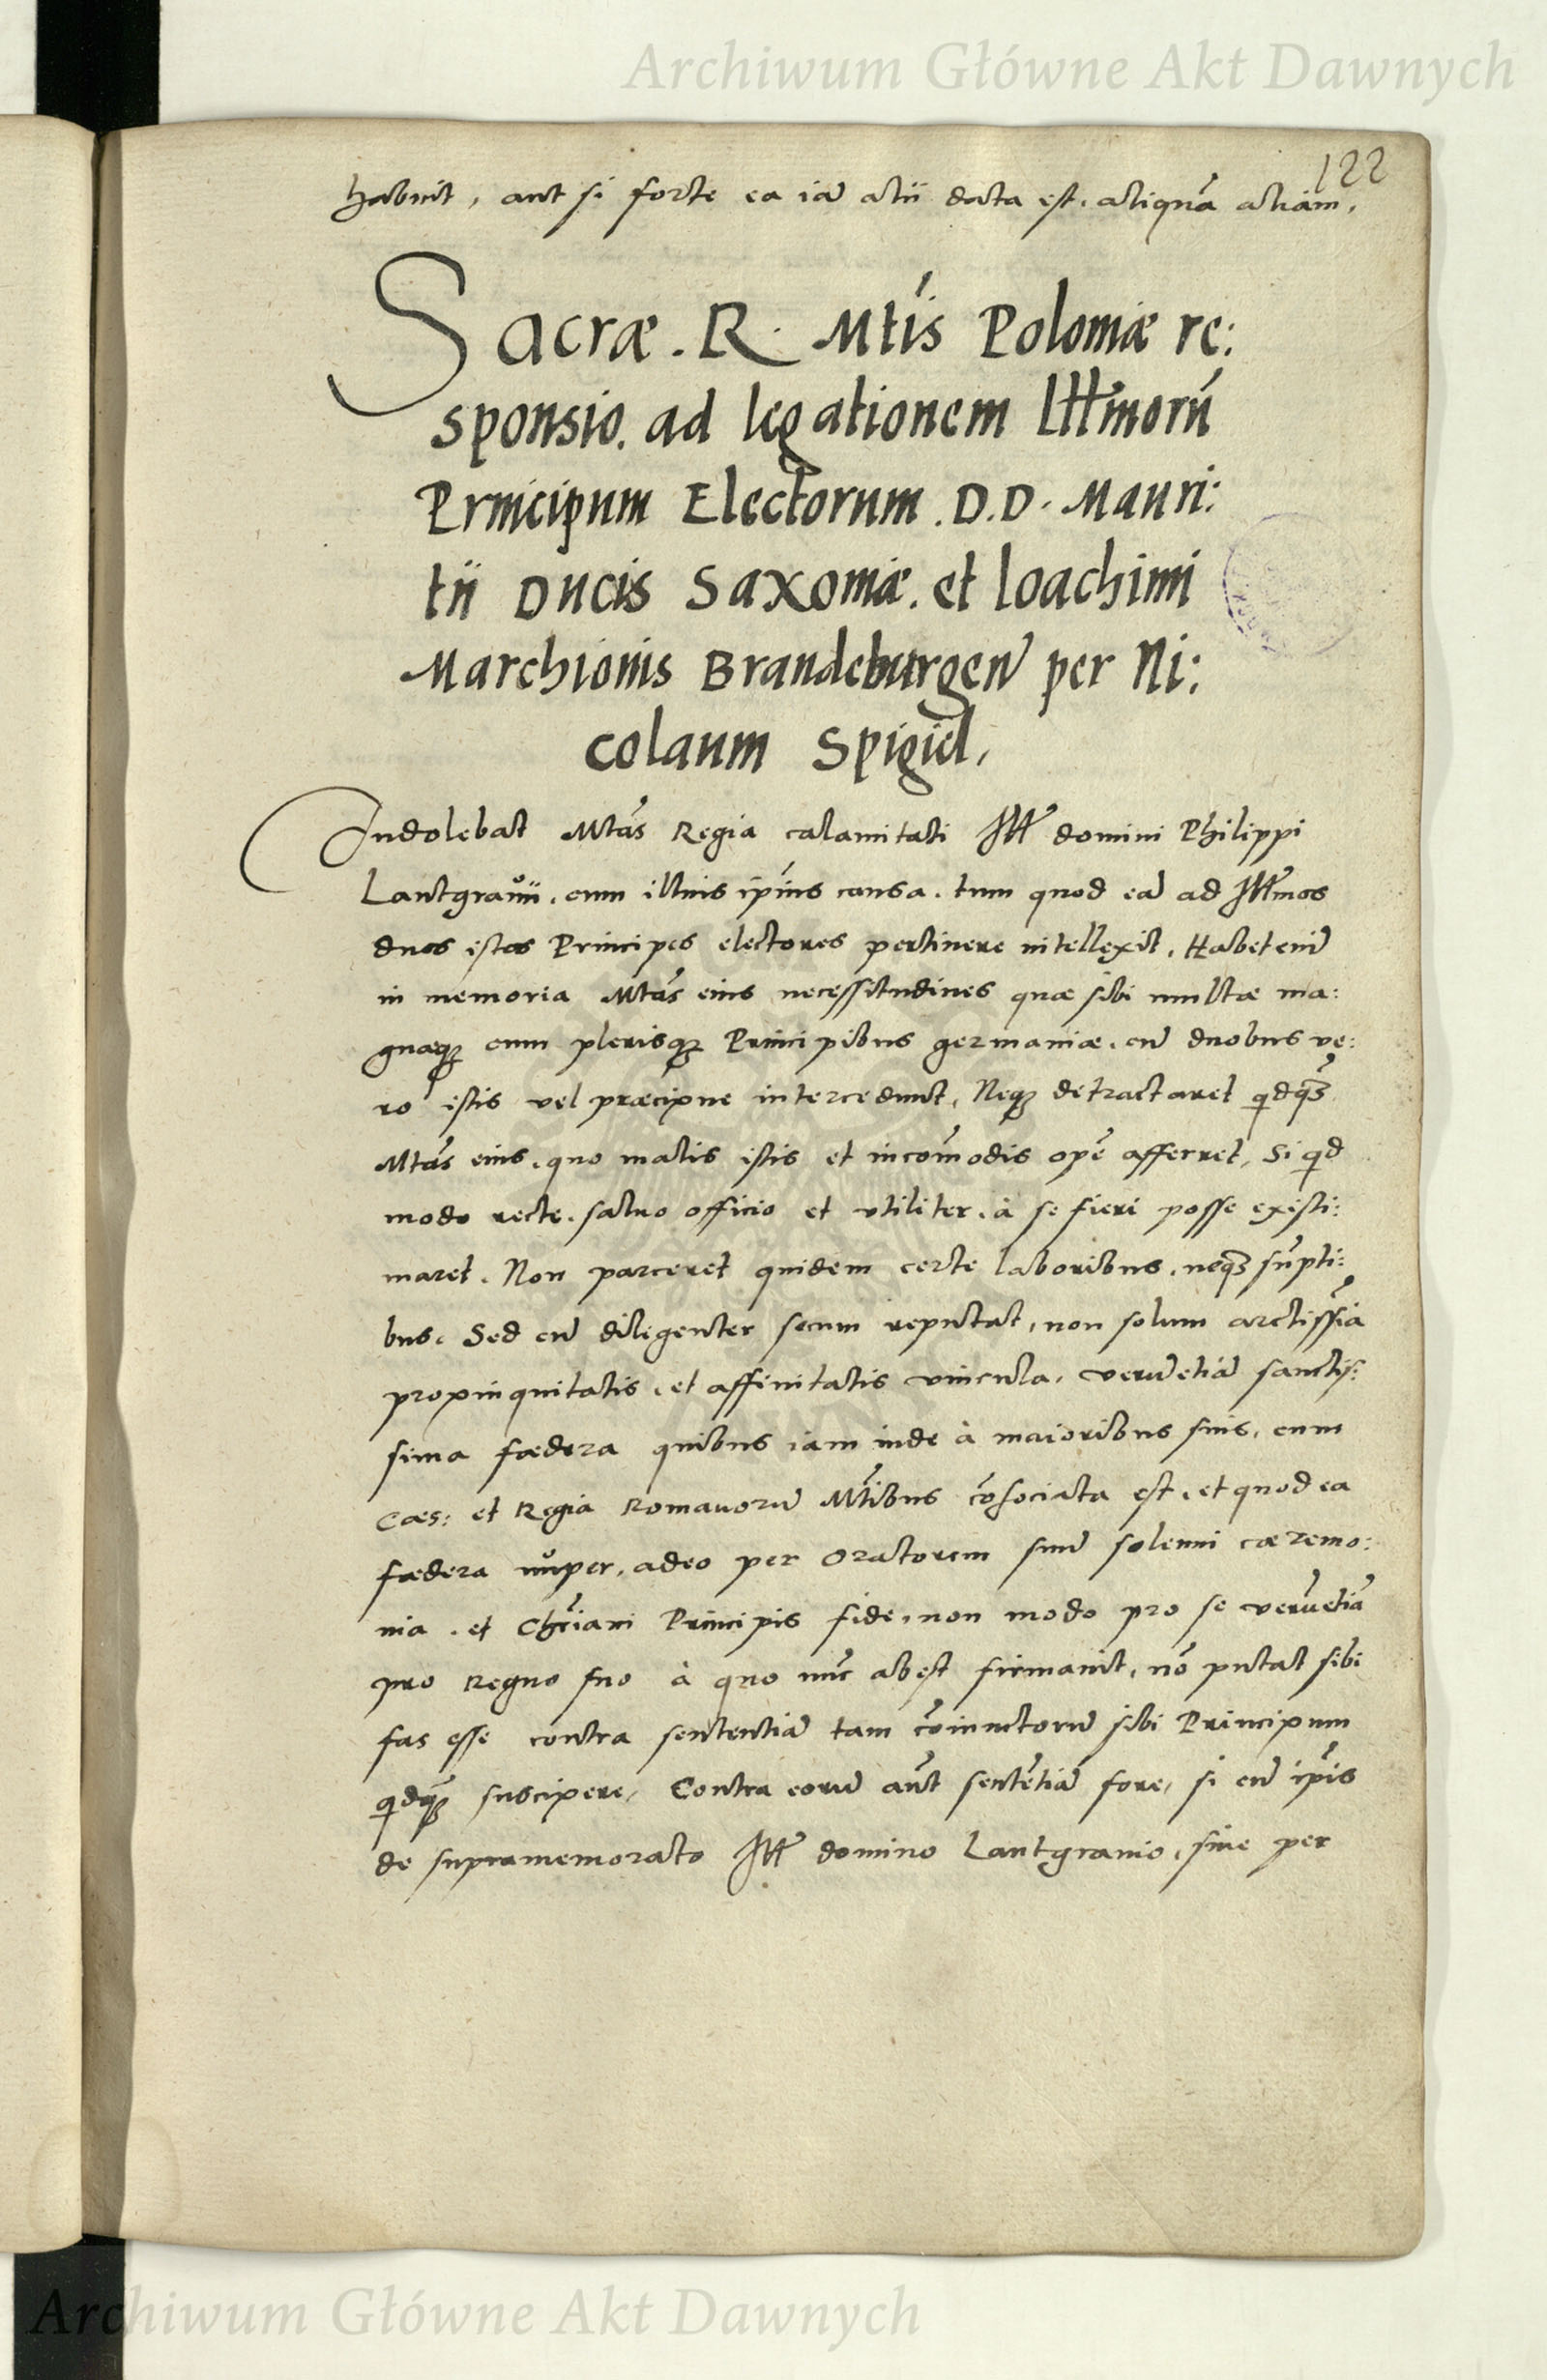 Archiwum Główne Akt Dawnych
122
habuit, aut si forte ea iā alii data est, aliquā aliam,
Sacræ. R. Mtis Poloniæ re:
sponsio. ad legationem Illmorū
Principum Electorum. D. D. Mauri:
tii Ducis Saxoniæ. et Ioachimi
Marchionis Brandeburgen̄ per Ni:
colaum Spigiel,
Indolebat Mtas Regia calamitati Ill domini Philippi
Lantgravii, cum illius ip̄ius causa, tum quod eā ad Illmos
duos istos Principes electores pertinere intellexit, Habet enī
in memoria Mtas eius necessitudines quæ sibi multæ ma:
gnæq; cum plerisq; Principibus germaniæ, cū duobus ve:
ro istis vel præcipue intercedunt, Neq; detractaret qdq̄
Mtas eius, quo malis istis et incōmodis opē afferret, Si qd
modo recte, salvo officio et utiliter, à se fieri posse existi:
maret. Non parceret quidem certe laboribus, neq; sūpti:
bus. Sed cū diligenter secum reputat, non solum arctissīa
propinquitatis, et affinitatis vincula, verū etiā sanctis:
sima fœdera quibus iam inde à maioribus suis, cum
Caes: et Regia Romanorū Mtibus cōsociata est, et quod ea
fœdera nuper, adeo per Oratorem suū solenni cæremo:
nia, et Chr̄iani Principis fide, non modo pro se verū etiā
pro Regno suo à quo nūc abest firmavit, nō putat sibi
fas esse contra sententiā tam cōiunctorū sibi Principum
qdq̄ suscipere, Contra eorū aūt sentētiā fore, si cū ip̄is
de supramemorato Ill domino Lantgravio, sive per
Archiwum Główne Akt Dawnych